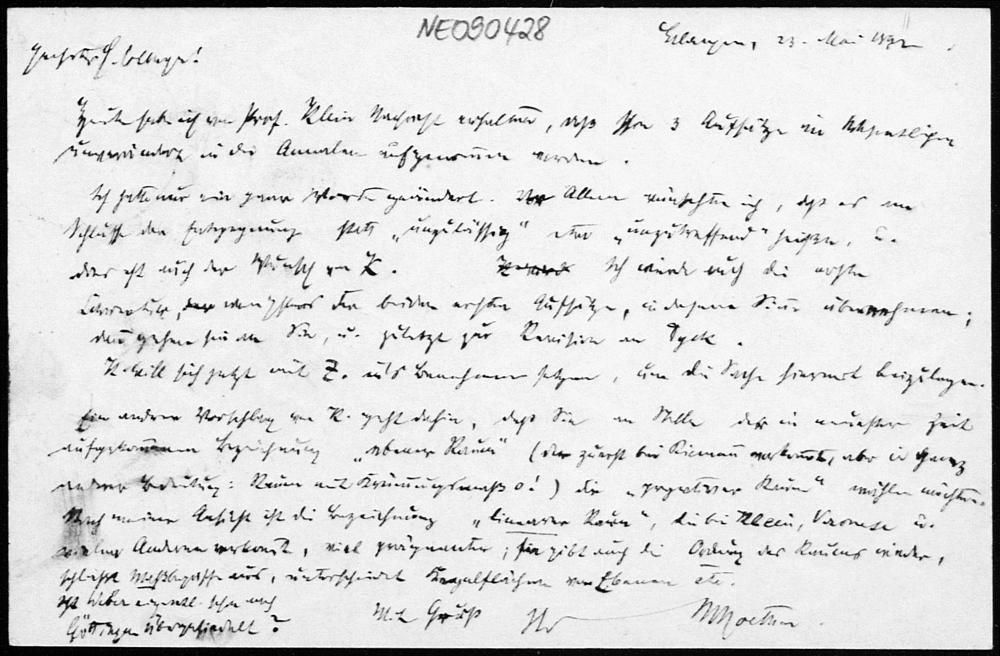 NE090428
Erlangen, 23. Mai 1892
Geehrter H. College!
Heute habe ich von Prof. Klein Nachricht erhalten, daß Ihre 3 Aufsätze im Wesentlichen
unverändert in die Annalen aufgenommen werden.
Ich hatte nur ein paar Worte geändert. Vor Allem wünschte ich, daß es am
Schlusse der Entgegnung statt „unzulässig" etwa „unzutreffend" heiße, u.
dies ist auch der Wunsch von K. Ich würde auch die erste
Correctur, der beiden ersten Aufsätze, in diesem Sinne übernehmen;
dann gehen sie an Sie, u. zuletzt zur Revision an Dyck.
K. will sich jetzt mit Z. ins Benehmen setzen, um die Sache hiermit beizulegen.
Ein anderer Vorschlag von K. geht dahin, daß Sie an Stelle der in neuester Zeit
aufgekommenen Bezeichnung „ebener Raum" (der zuerst bei Riemann vorkommt, aber in ganz
anderer Bedeutung: Raum mit Krümmungsmaß 0!) die „projectiver Raum" wählen möchten.
Nach meiner Ansicht ist die Bezeichnung „linearer Raum", die bei Klein, Veronese u.
vielen Anderen vorkommt, viel prägnanter; sie gibt auch die Ordnung des Raumes wieder,
schließt Maßbegriffe aus, unterscheidet Kegelflächen von Ebenen etc.
Ist Weber eigentl. schon nach
Göttingen übergesiedelt?
Mit Gruß
Ihr
MNoether.